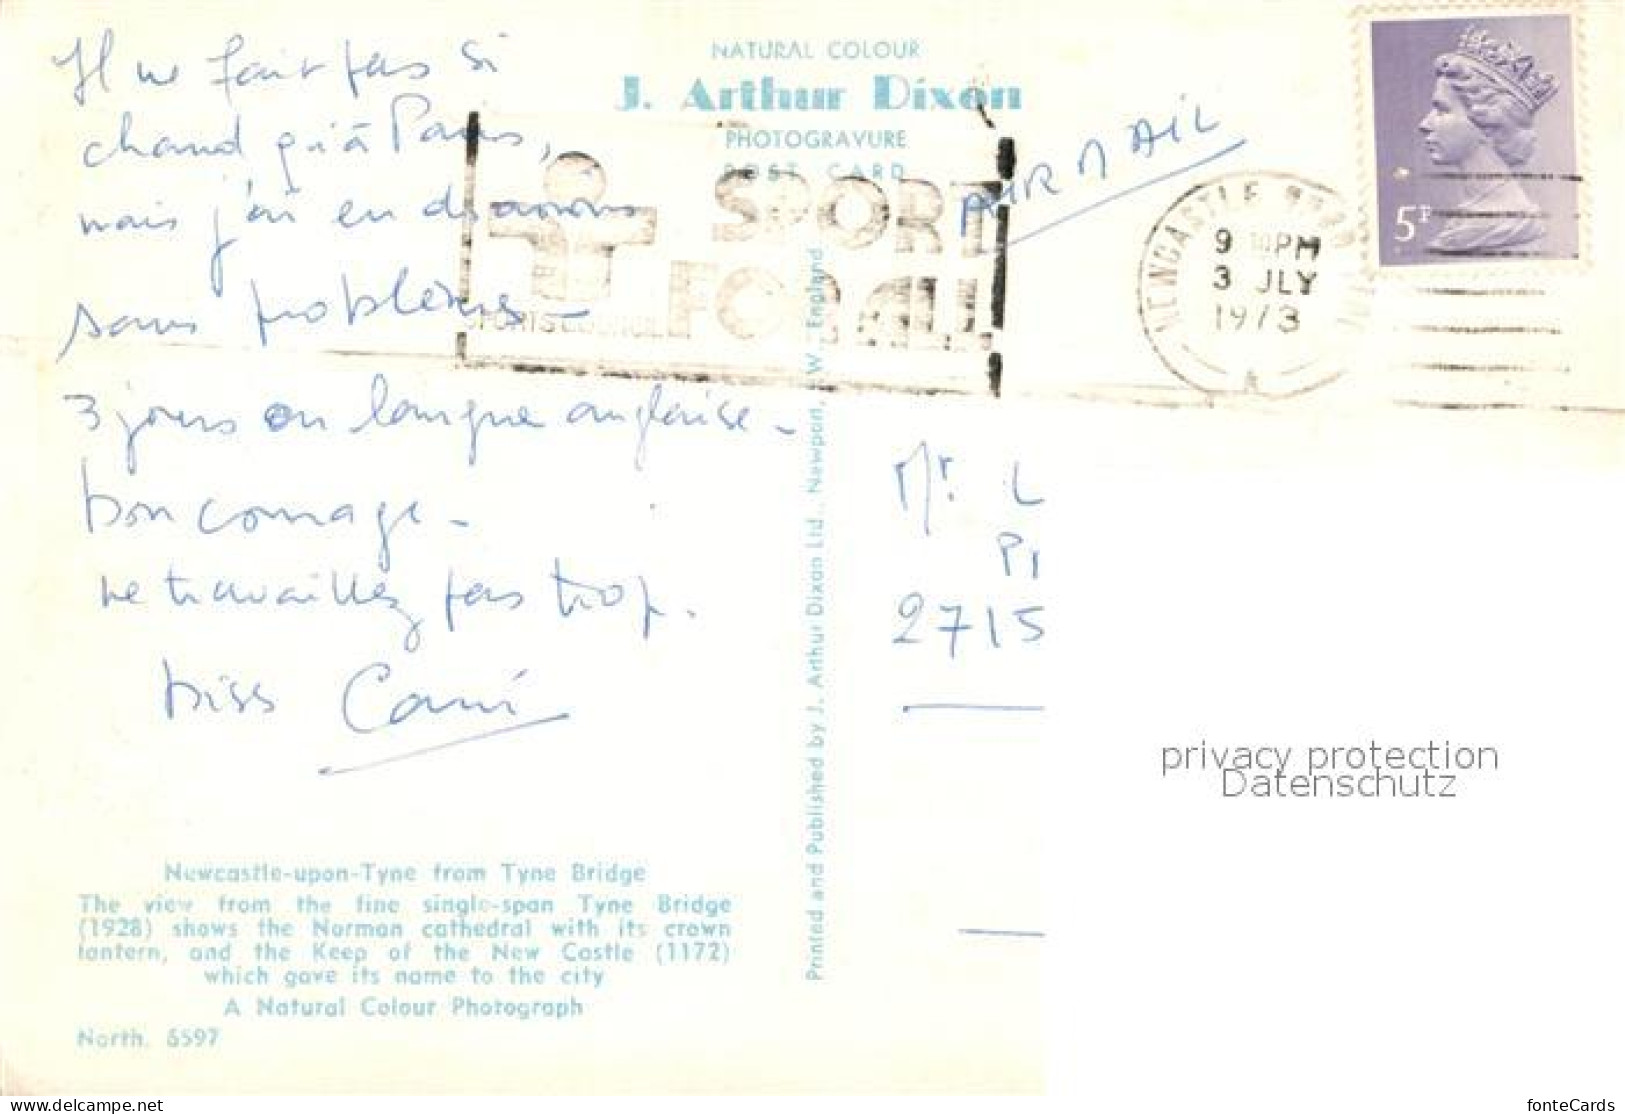 Il ne fait pas si
chaud qu'à Paris,
mais j'en
sans problème -
3 jours en langue anglaise -
bon courage -
ne travaillez pas trop.
biss
NATURAL COLOUR
J. Arthur Dixon
PHOTOGRAVURE
POST CARD
PAR
AIL
SPORT
FOR ALL
SPORTS COUNCIL
NEWCASTLE
9 PM
3 JLY
1973
A
5P
Mr. L
PI
2715
Printed and Published by J. Arthur Dixon Ltd., Newport, I.W., England
Newcastle-upon-Tyne from Tyne Bridge
The view from the fine single-span Tyne Bridge
(1928) shows the Norman cathedral with its crown
lantern, and the Keep of the New Castle (1172)
which gave its name to the city
A Natural Colour Photograph
North. 5597
privacy protection
Datenschutz
www.delcampe.net
fonteCards